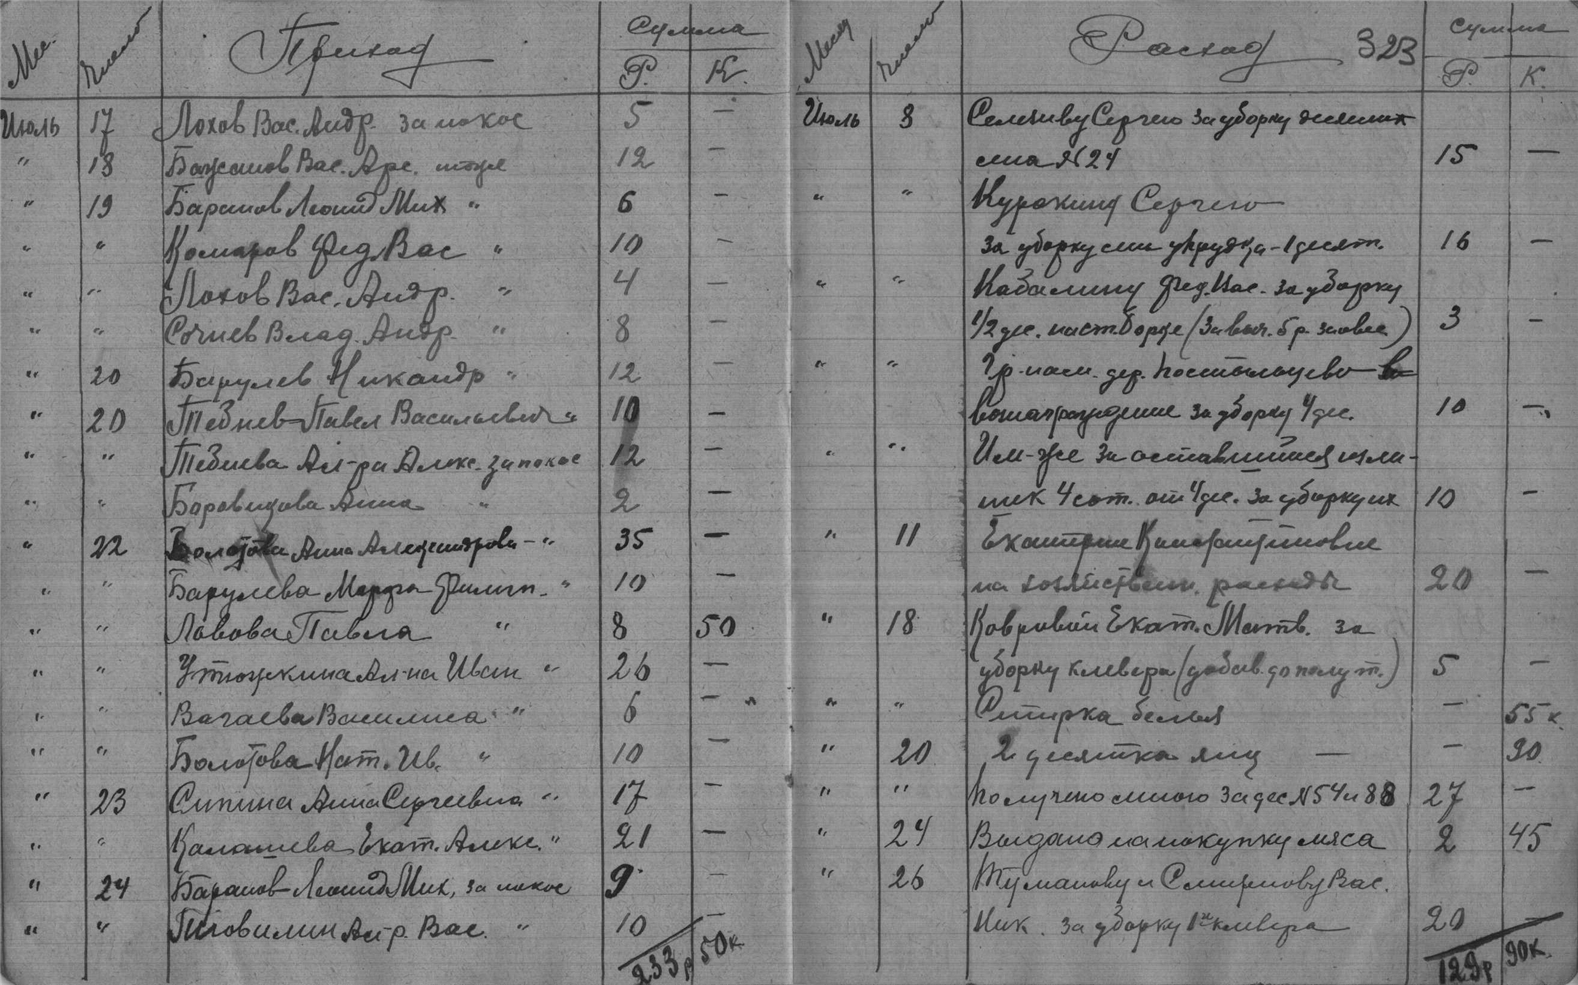 Мес. Число Приход Сумма Р. К.
Июль 17 Лохов Вас. Андр. за покос 5 —
" 18 Бажанов Вас. Арс. тоже 12 —
" 19 Баранов Леонид Мих " 6 —
" " Комаров Фед Вас " 10 —
" " Лохов Вас. Андр. " 4 —
" " Сочнев Влад. Андр. " 8 —
" 20 Барулев Никандр " 12 —
" 20 Тебнев Павел Васильевич " 10 —
" " Тебнева Ал-ра Алекс. за покос 12 —
" " Боровикова Анна " 2 —
" 22 Болотова Анна Александрова — " 35 —
" " Барулева Марфа Филип. " 10 —
" " Лавова Павла " 8 50
" " Утюжкина Ал-на Иван " 26 —
" " Вагаева Василиса " 6 — "
" " Болотова Нат. Ив. " 10 —
" 23 Сипина Анна Сергеевна " 17 —
" " Калашева Екат. Алекс. " 21 —
" 24 Баранов Леонид Мих. за покос 9 —
" " Андр. Вас. " 10 —
233р 50к
Месяц Число Расход 323 Сумма Р. К.
Июль 8 Селениву Сергею за уборку
сена N 24 15 —
" " Куракину Сергею
за уборку сена у пруда - 1 десят. 16 —
" " Кабалину Фед. Вас. за уборку
1/2 дес. (за выч. 5 р. за овес) 3 —
" " Гр-нам дер. в
вознаграждение за уборку 4 дес. 10 —
" " Им-же за оставшийся изли-
шек 4 сот. от 4 дес. за уборку их 10 —
" 11 Екатерине Константиновне
на хозяйствен. расходы 20 —
" 18 Ковровой Екат. Матв. за
уборку клевера (добав. до полут.) 5 —
" " Стирка белья — 55 к
" 20 2 десятка яиц — — 90
" " Получено мною за дес N 54 и 88 27 —
" 24 Выдано на покупку мяса 2 45
" 26 Туманову и Смирнову Вас.
Ник. за уборку 1 клевера 20 —
129р 90к.